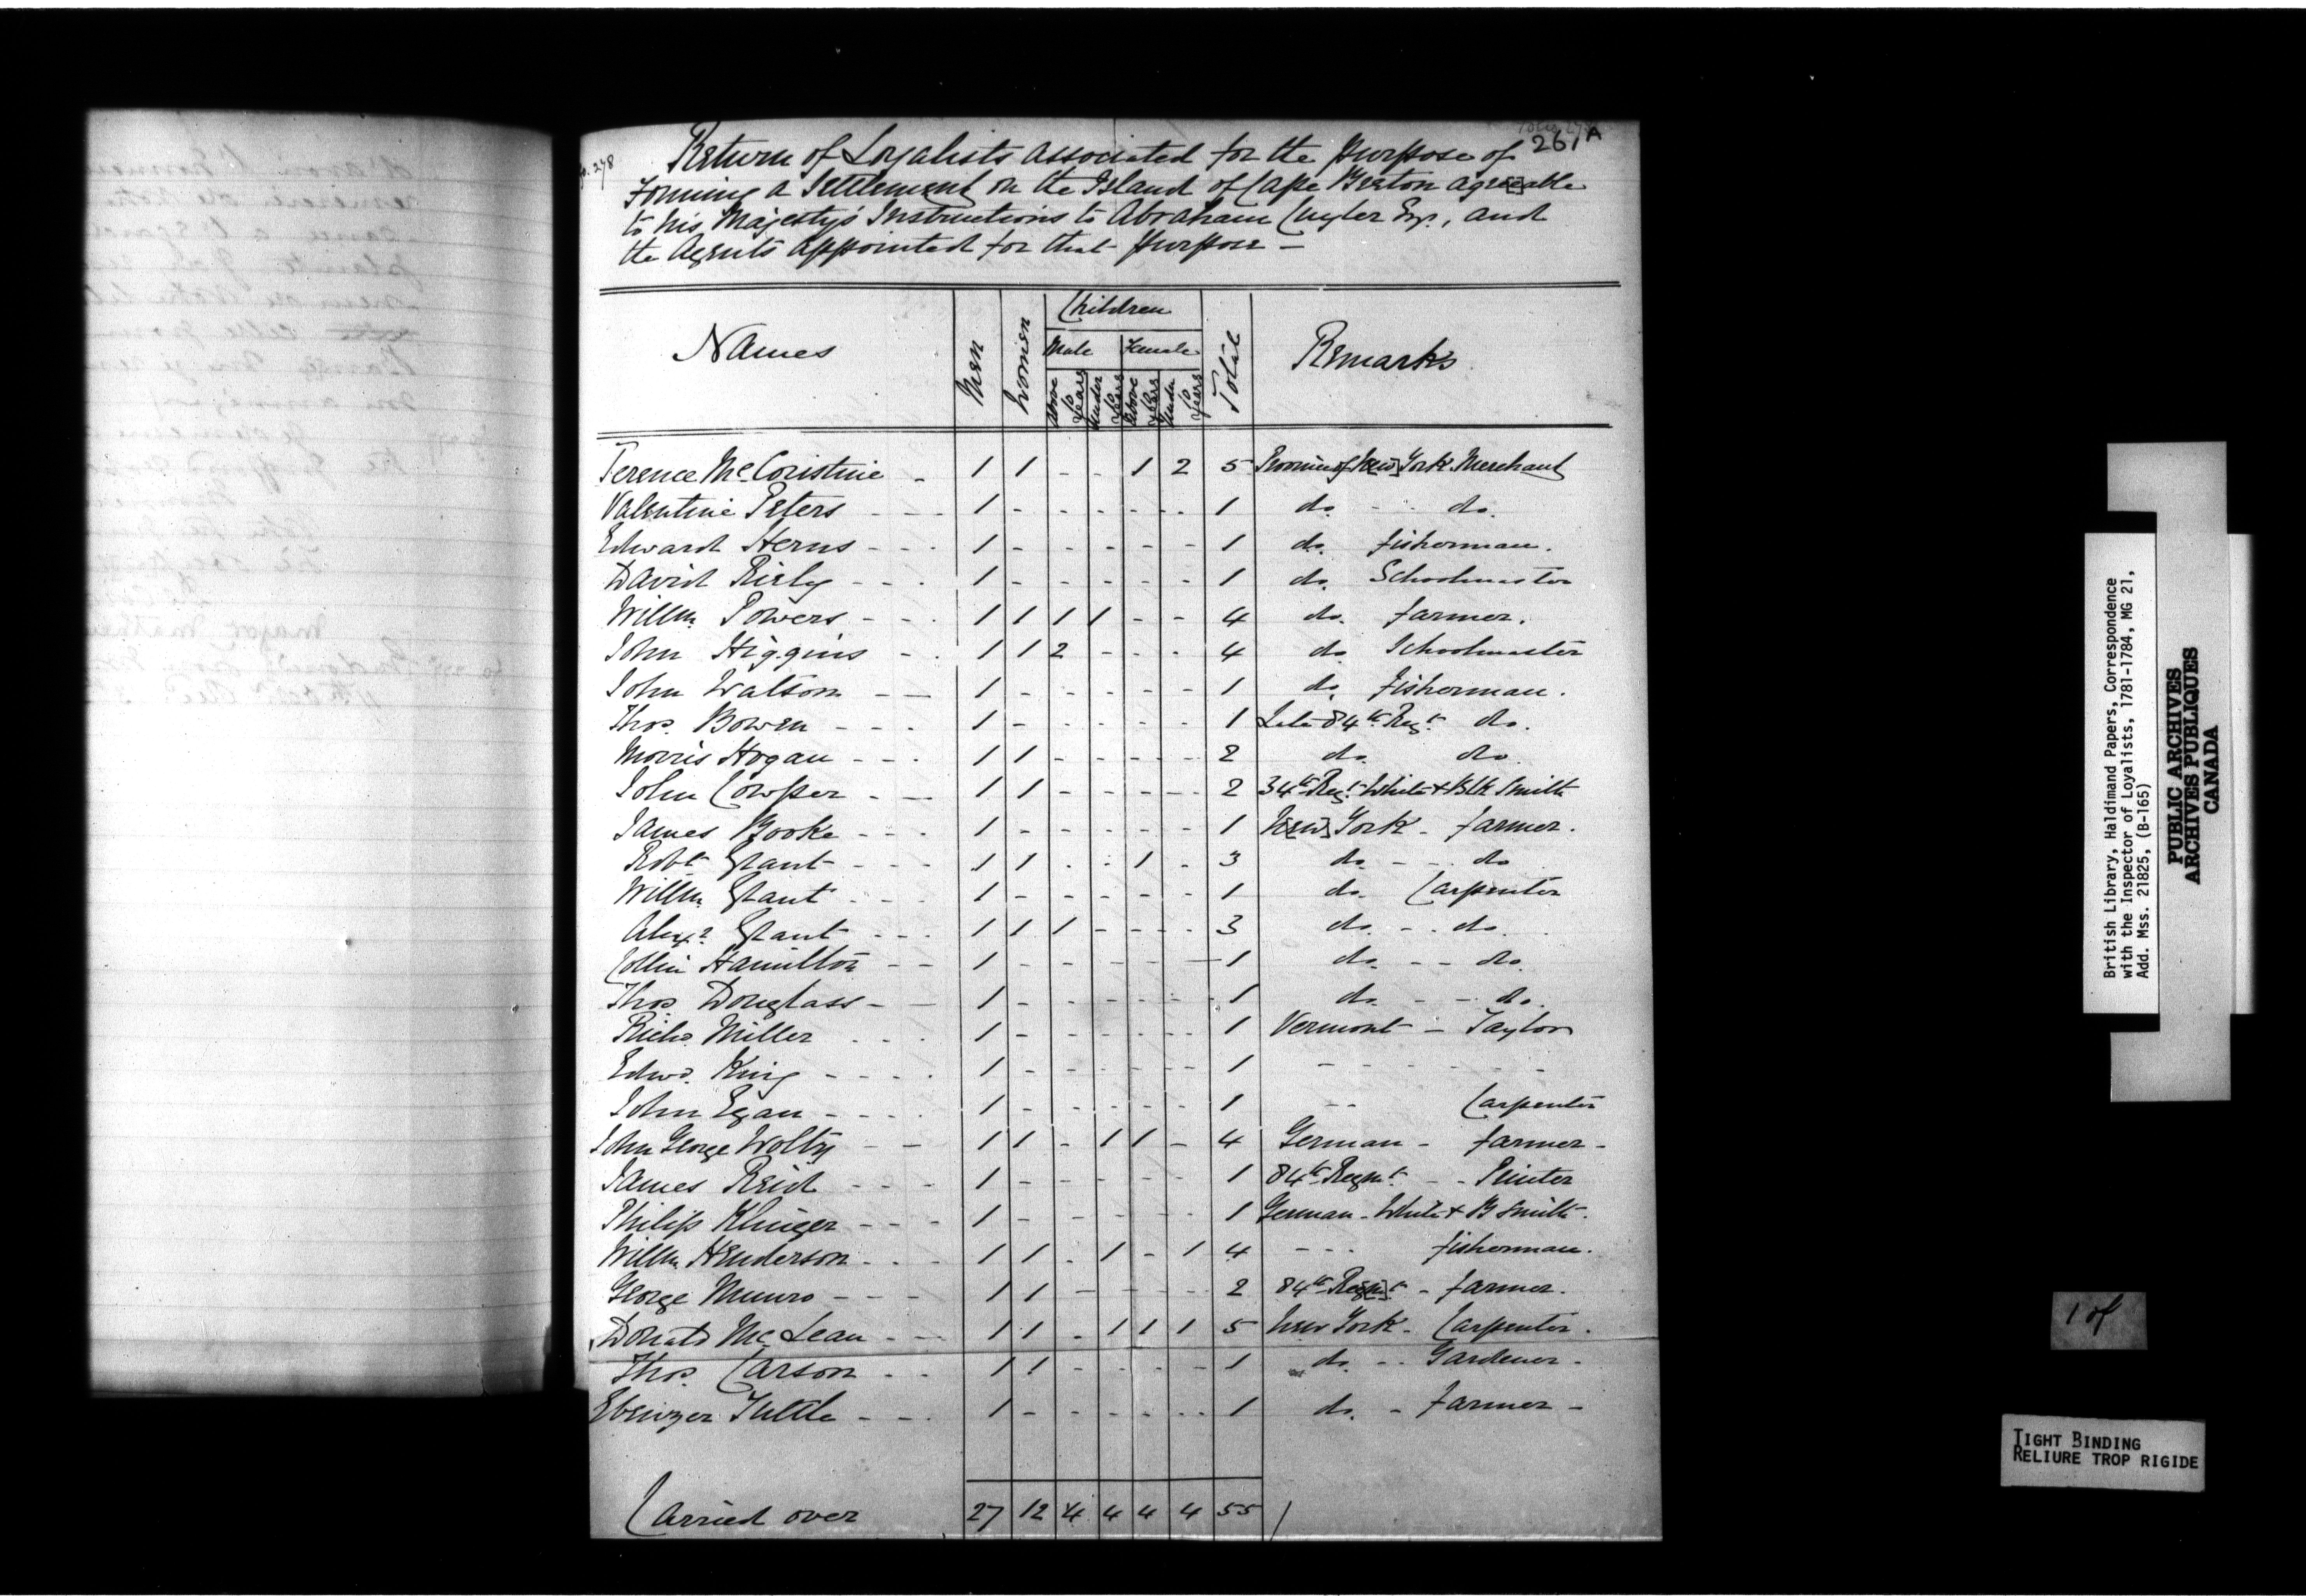 fo. 278
261A
Return of Loyalists associated for the purpose of
forming a Settlement on the Island of Cape Breton agreeable
to his Majesty's Instructions to Abraham Cuyler Esqr., and
the Agents appointed for that purpose —
Names Men Women Children Total Remarks
Male Female
above 10 Years under 10 Years above 10 Years under 10 Years
Terence McCoristine - 1 1 - - 1 2 5 Province of Ne[w] York Merchant
Valentine Peters - - - 1 - - - - - 1 do. - - do.
Edward Herns - - - 1 - - - - - 1 do. fisherman.
David Risly - - - 1 - - - - - 1 do. Schoolmaster
Willm. Powers - - - 1 1 1 1 - - 4 do. farmer.
John Higgins - - 1 1 2 - - - 4 do. Schoolmaster
John Watson - - 1 - - - - - 1 do. fisherman.
Thos. Bowen - - - 1 - - - - - 1 Late 84th Regt. do.
Morris Hogan - - - 1 1 - - - - 2 do. do.
John Cowper - - 1 1 - - - - 2 34th Regt. White & Blk Smith
James Booke - - - 1 - - - - - 1 N[ew] York - farmer.
Robt Grant - - - 1 1 - - 1 - 3 do. - - do
Willm. Grant - - - 1 - - - - - 1 do. Carpenter
Alexr. Grant - - - 1 1 1 - - - 3 do. - - do.
Collin Hamilton - - 1 - - - - - 1 do. - - do.
Thos Douglass - - 1 - - - - - 1 do. - - do.
Richd. Miller - - - 1 - - - - - 1 Vermont - Taylor
Edwd. King - - - - 1 - - - - - 1 - - - - - -
John Egan - - - - 1 - - - - - 1 - - Carpenter
John George Wolty - - 1 1 - 1 1 - 4 German - farmer -
James Reid - - - 1 - - - - - 1 84th Regmt. - - Printer
Philip Klinger - - - 1 - - - - - 1 German - White & B Smith -
Willm. Henderson - - - 1 1 - 1 - 1 4 - - - fisherman.
George Munro - - - 1 1 - - - - 2 84th Reg[m]t - farmer.
Donald McLean - - - 1 1 - 1 1 1 5 New York - Carpenter.
Thos. Carson - - 1 1 - - - - 1 do. - - Gardener -
Ebenezer Tuttle - - - 1 - - - - - 1 do. - farmer -
Carried over 27 12 4 4 4 4 55
British Library, Haldimand Papers, Correspondence
with the Inspector of Loyalists, 1781-1784, MG 21,
Add. Mss. 21825, (B-165)
PUBLIC ARCHIVES
ARCHIVES PUBLIQUES
CANADA
1 of
TIGHT BINDING
RELIURE TROP RIGIDE